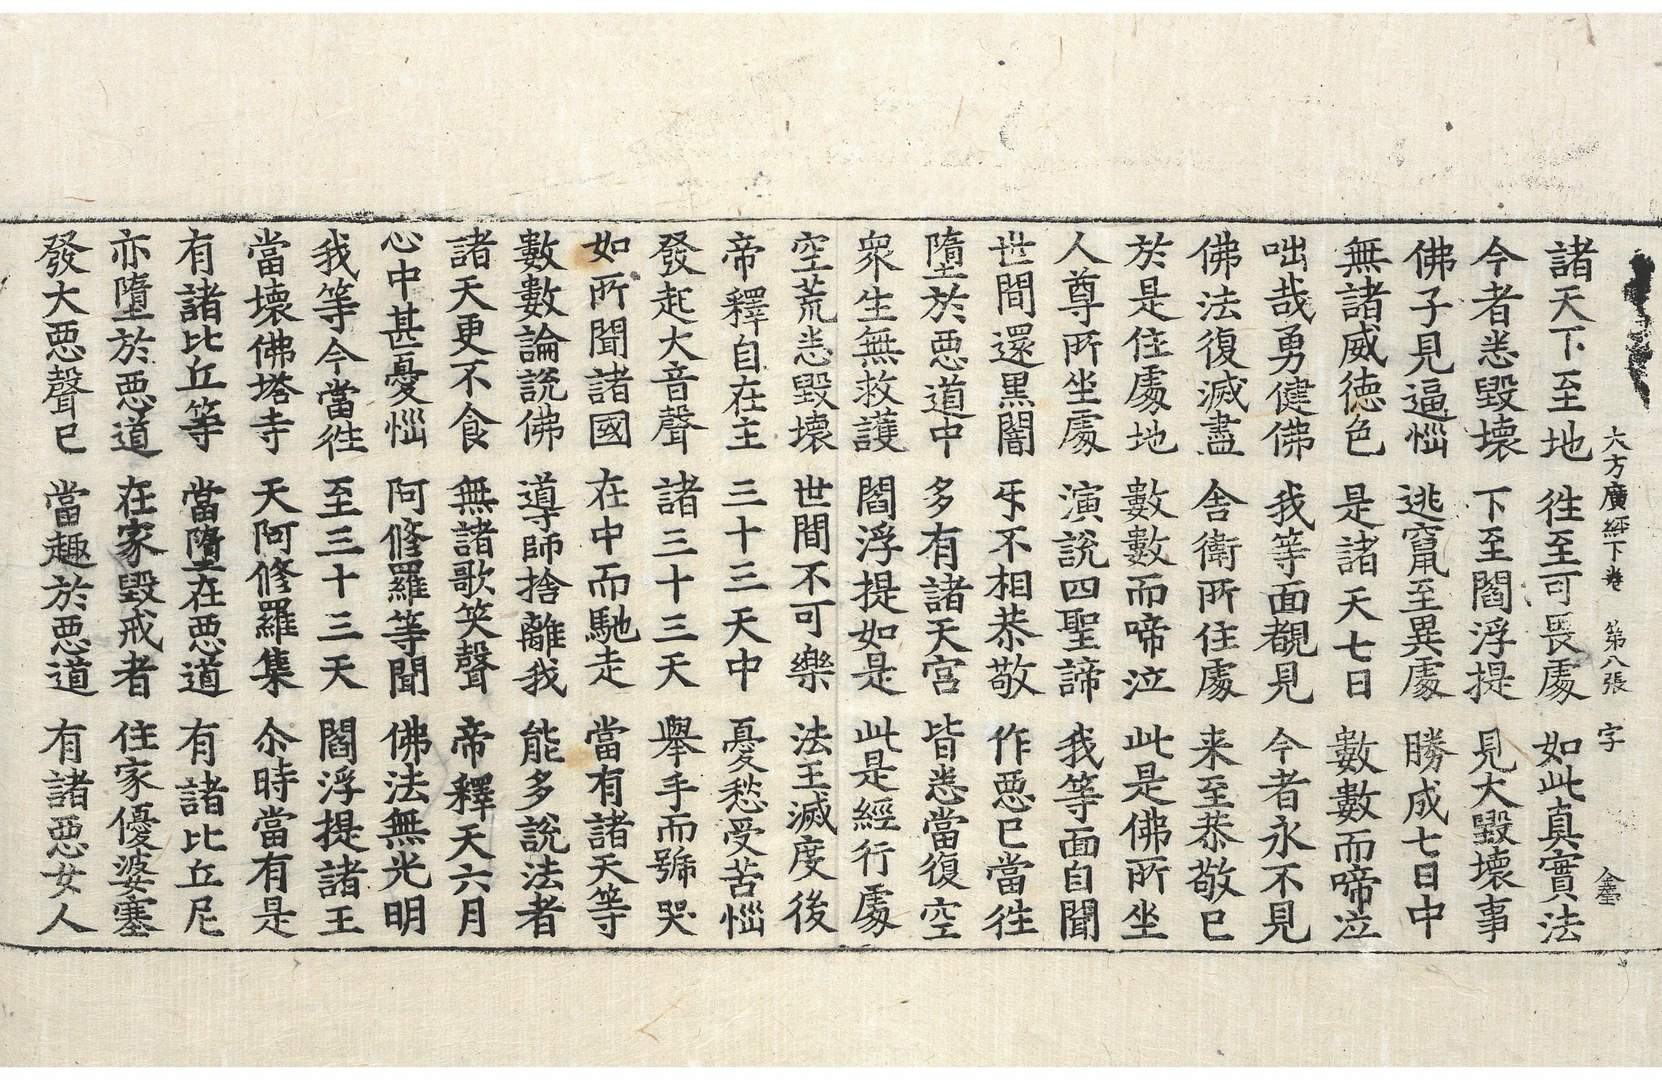 大方廣經下卷 第八張 字
諸天下至地 徃至可畏處 如此真實法
今者悉毀壞 下至閻浮提 見大毀壞事
佛子見逼惱 逃竄至異處 勝成七日中
無諸威德色 是諸天七日 數數而啼泣
咄哉勇健佛 我等面覩見 今者永不見
佛法復滅盡 舍衛所住處 来至恭敬已
於是住處地 數數而啼泣 此是佛所坐
人尊所坐處 演說四聖諦 我等面自聞
世間還黒闇 㸦不相恭敬 作惡已當徃
墮於惡道中 多有諸天宮 皆悉當復空
衆生無救護 閻浮提如是 此是經行處
空荒悉毀壞 世間不可樂 法王滅度後
帝釋自在主 三十三天中 憂愁受苦惱
發起大音聲 諸三十三天 舉手而號哭
如所聞諸國 在中而馳走 當有諸天等
數數論說佛 導師捨離我 能多說法者
諸天更不食 無諸歌笑聲 帝釋天六月
心中甚憂惱 阿修羅等聞 佛法無光明
我等今當徃 至三十三天 閻浮提諸王
當壞佛塔寺 天阿修羅集 尒時當有是
有諸比丘等 當墮在惡道 有諸比丘尼
亦墮於惡道 在家毀戒者 住家優婆塞
發大惡聲已 當趣於惡道 有諸惡女人